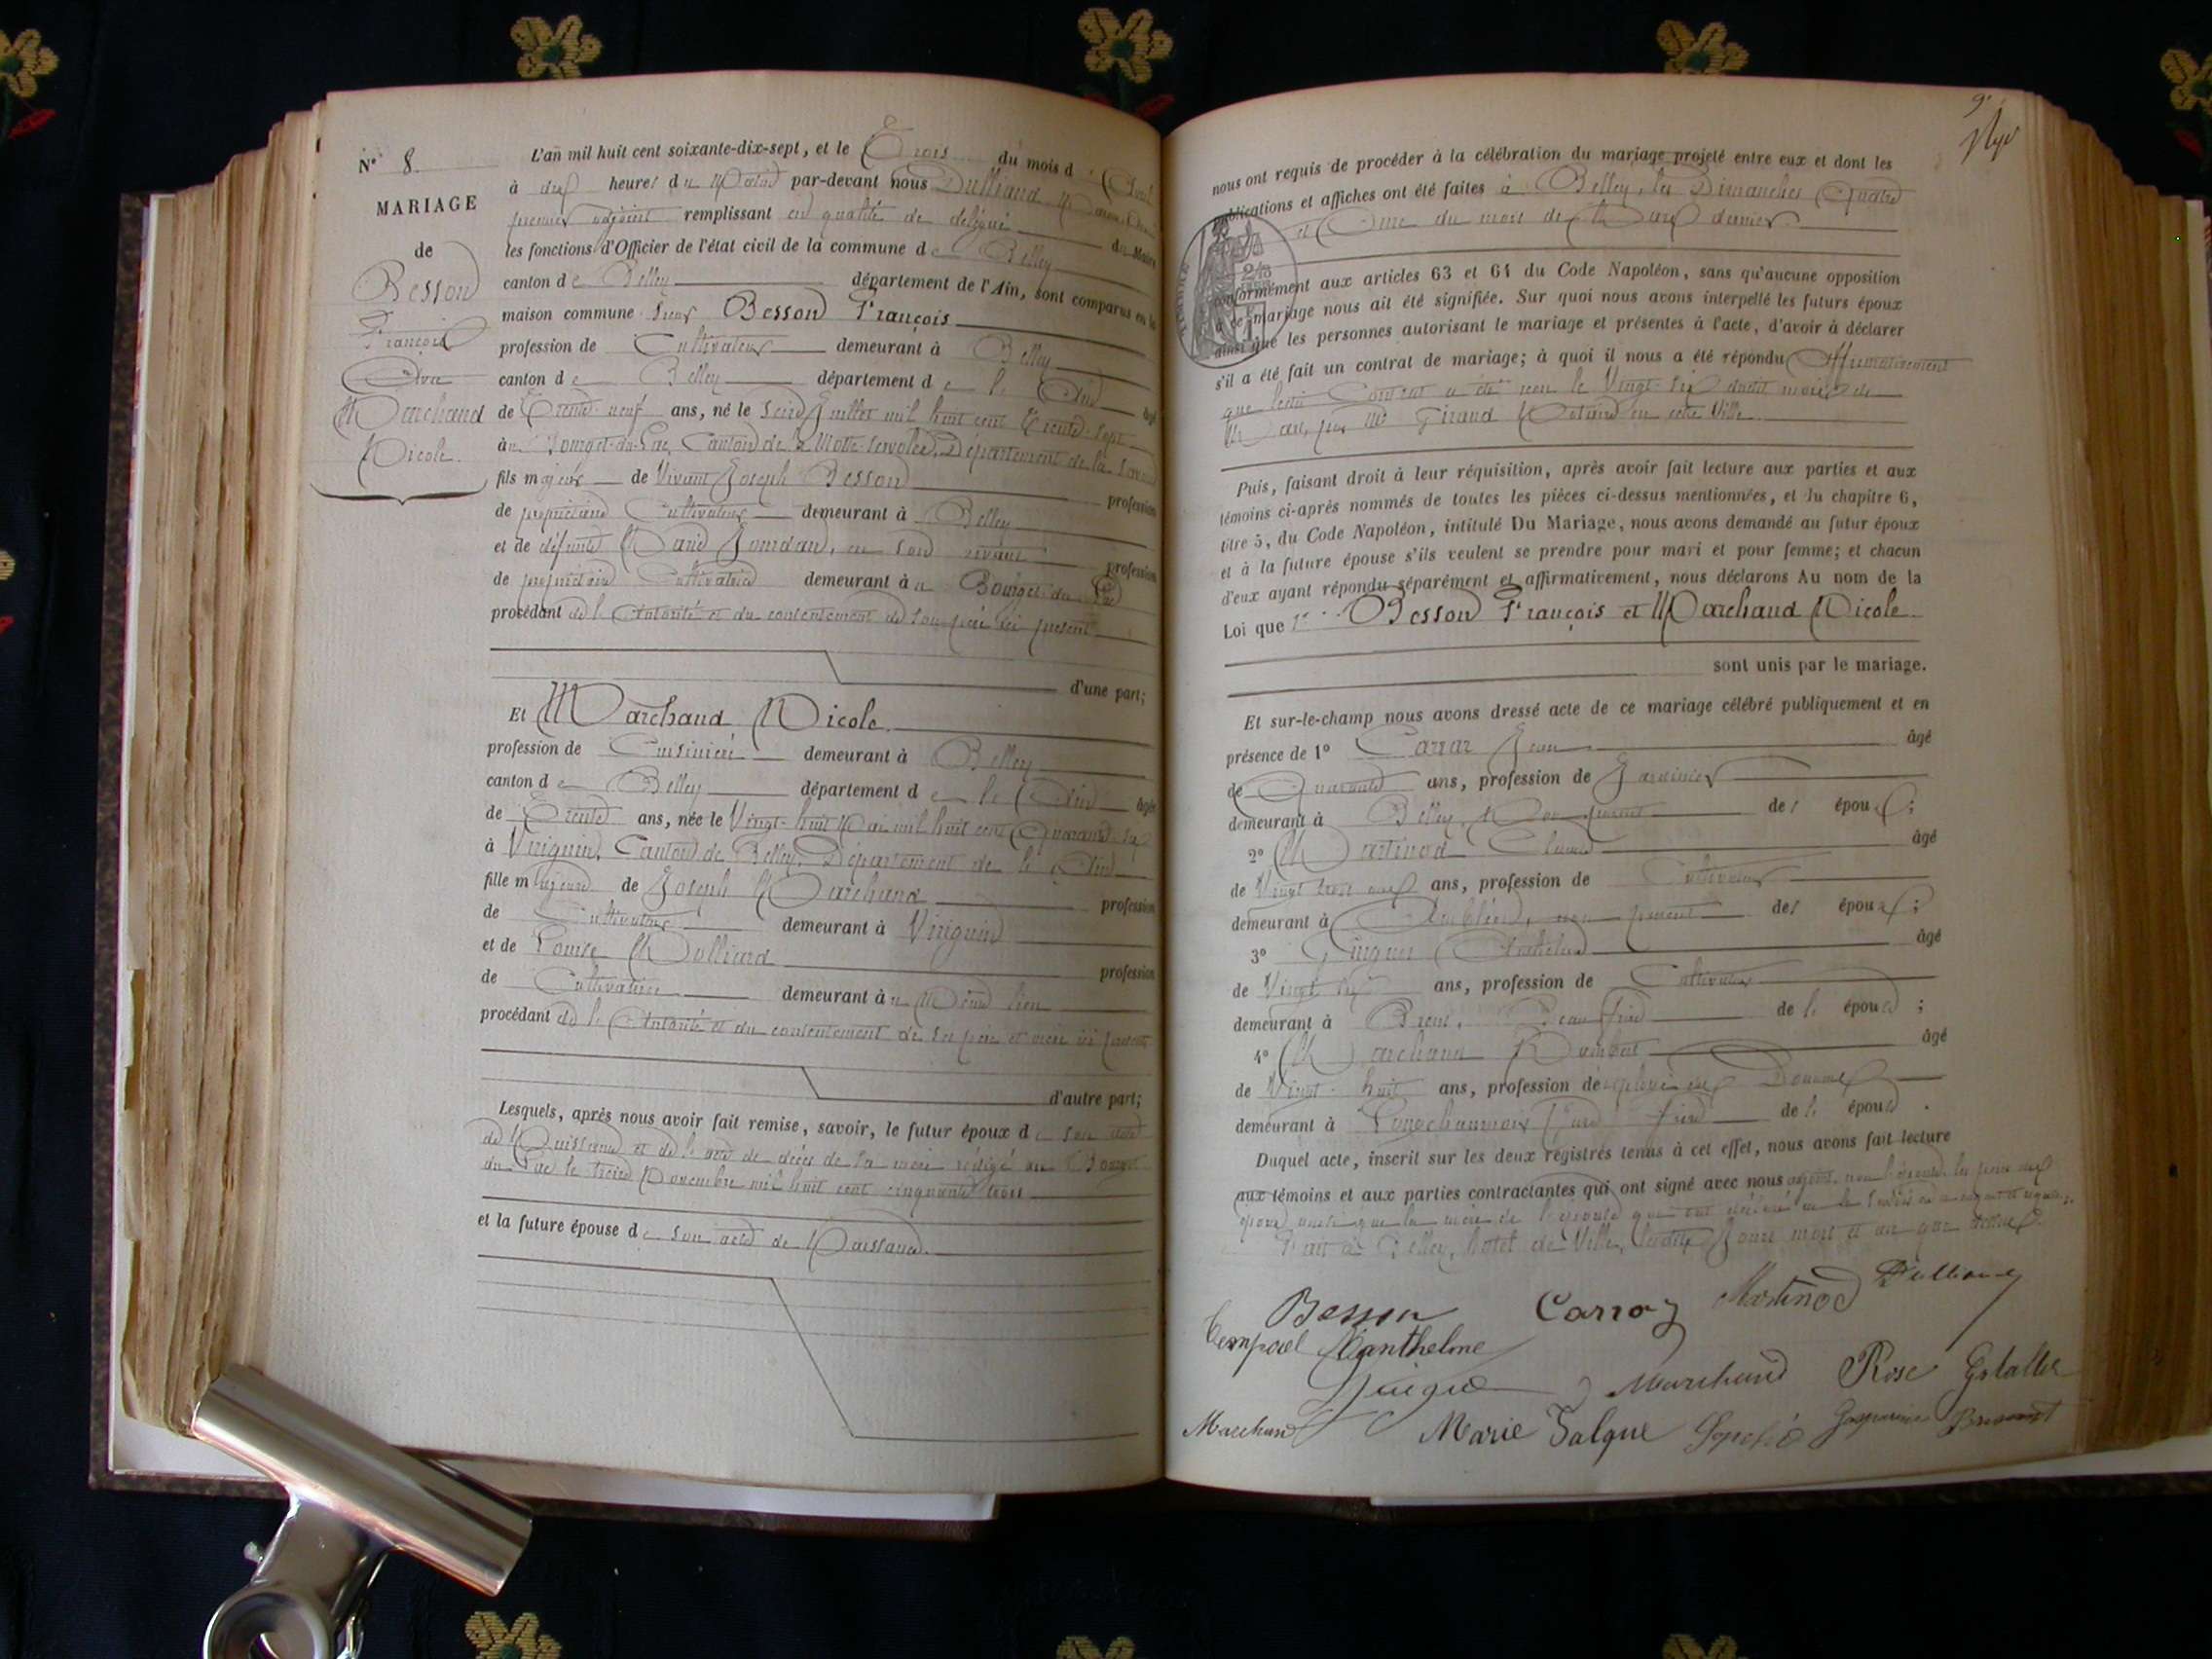 N° 8.
MARIAGE
de
Besson
François
Avec
Marchand
Nicole.
L'an mil huit cent soixante-dix-sept, et le Trois du mois d'Avril
à dix heures du Matin par-devant nous Dulliand
premier adjoint remplissant en qualité de délégué du Maire
les fonctions d'Officier de l'état civil de la commune de Belley
canton de Belley département de l'Ain, sont comparus en la
maison commune Sieur Besson François
profession de Cultivateur demeurant à Belley
canton de Belley département de l'Ain âgé
de Trente-neuf ans, né le Seize Juillet mil huit cent Trente-sept
au Bourget-du-Lac, Canton de la Motte-Servolex, Département de la Savoie
fils majeur de Vivant Joseph Besson profession
de propriétaire Cultivateur demeurant à Belley
et de défunte Marie Jourdan, en son vivant profession
de propriétaire Cultivatrice demeurant au Bourget du Lac
procédant de l'Autorité et du consentement de son père ici présent
d'une part;
Et Marchand Nicole.
profession de Cuisinière demeurant à Belley
canton de Belley département de l'Ain âgée
de Trente ans, née le Vingt-huit Mai mil huit cent Quarante six
à Virignin, Canton de Belley, Département de l'Ain
fille majeure de Joseph Marchand profession
de Cultivateur demeurant à Virignin
et de Louise Molliard profession
de Cultivatrice demeurant au Même lieu
procédant de l'Autorité et du consentement de ses père et mère ici présents
d'autre part;
Lesquels, après nous avoir fait remise, savoir, le futur époux de son acte
de Naissance et de l'acte de décès de sa mère rédigé au Bourget
du Lac le treize Novembre mil huit cent cinquante trois
et la future épouse de son acte de Naissance.
9
nous ont requis de procéder à la célébration du mariage projeté entre eux et dont les
publications et affiches ont été faites à Belley, les Dimanches Quatre
et Onze du mois de Mars dernier.
conformément aux articles 63 et 64 du Code Napoléon, sans qu'aucune opposition
à ce mariage nous ait été signifiée. Sur quoi nous avons interpellé les futurs époux
ainsi que les personnes autorisant le mariage et présentes à l'acte, d'avoir à déclarer
s'il a été fait un contrat de mariage; à quoi il nous a été répondu Affirmativement
que ledit Contrat a été reçu le Vingt-six dudit mois de
Mars, par Me Giraud Notaire en cette Ville
Puis, faisant droit à leur réquisition, après avoir fait lecture aux parties et aux
témoins ci-après nommés de toutes les pièces ci-dessus mentionnées, et du chapitre 6,
titre 5, du Code Napoléon, intitulé Du Mariage, nous avons demandé au futur époux
et à la future épouse s'ils veulent se prendre pour mari et pour femme; et chacun
d'eux ayant répondu séparément et affirmativement, nous déclarons Au nom de la
Loi que Besson François et Marchand Nicole.
sont unis par le mariage.
Et sur-le-champ nous avons dressé acte de ce mariage célébré publiquement et en
présence de 1° Carraz Jean âgé
de Quarante ans, profession de Jardinier
demeurant à Belley, Non parent des époux;
2° Martinod âgé
de Vingt ans, profession de Cultivateur
demeurant à Ambléon, non parent des époux;
3° Guigue Anthelme âgé
de Vingt six ans, profession de Cultivateur
demeurant à Brens, Beau frère de l'épouse;
4° Marchand Rambert âgé
de Vingt-huit ans, profession d'employé des Douanes
demeurant à Longchaumois (Jura) frère de l'épouse.
Duquel acte, inscrit sur les deux registres tenus à cet effet, nous avons fait lecture
aux témoins et aux parties contractantes qui ont signé avec nous
époux ainsi que la mère de l'épouse qui ont déclaré ne le savoir
Fait à Belley, hôtel de Ville, lesdits Jour mois et an que dessus.
Besson Carraz Martinod Dulliand
Anthelme
Guigue Marchand Rose
Marchand Marie Salque